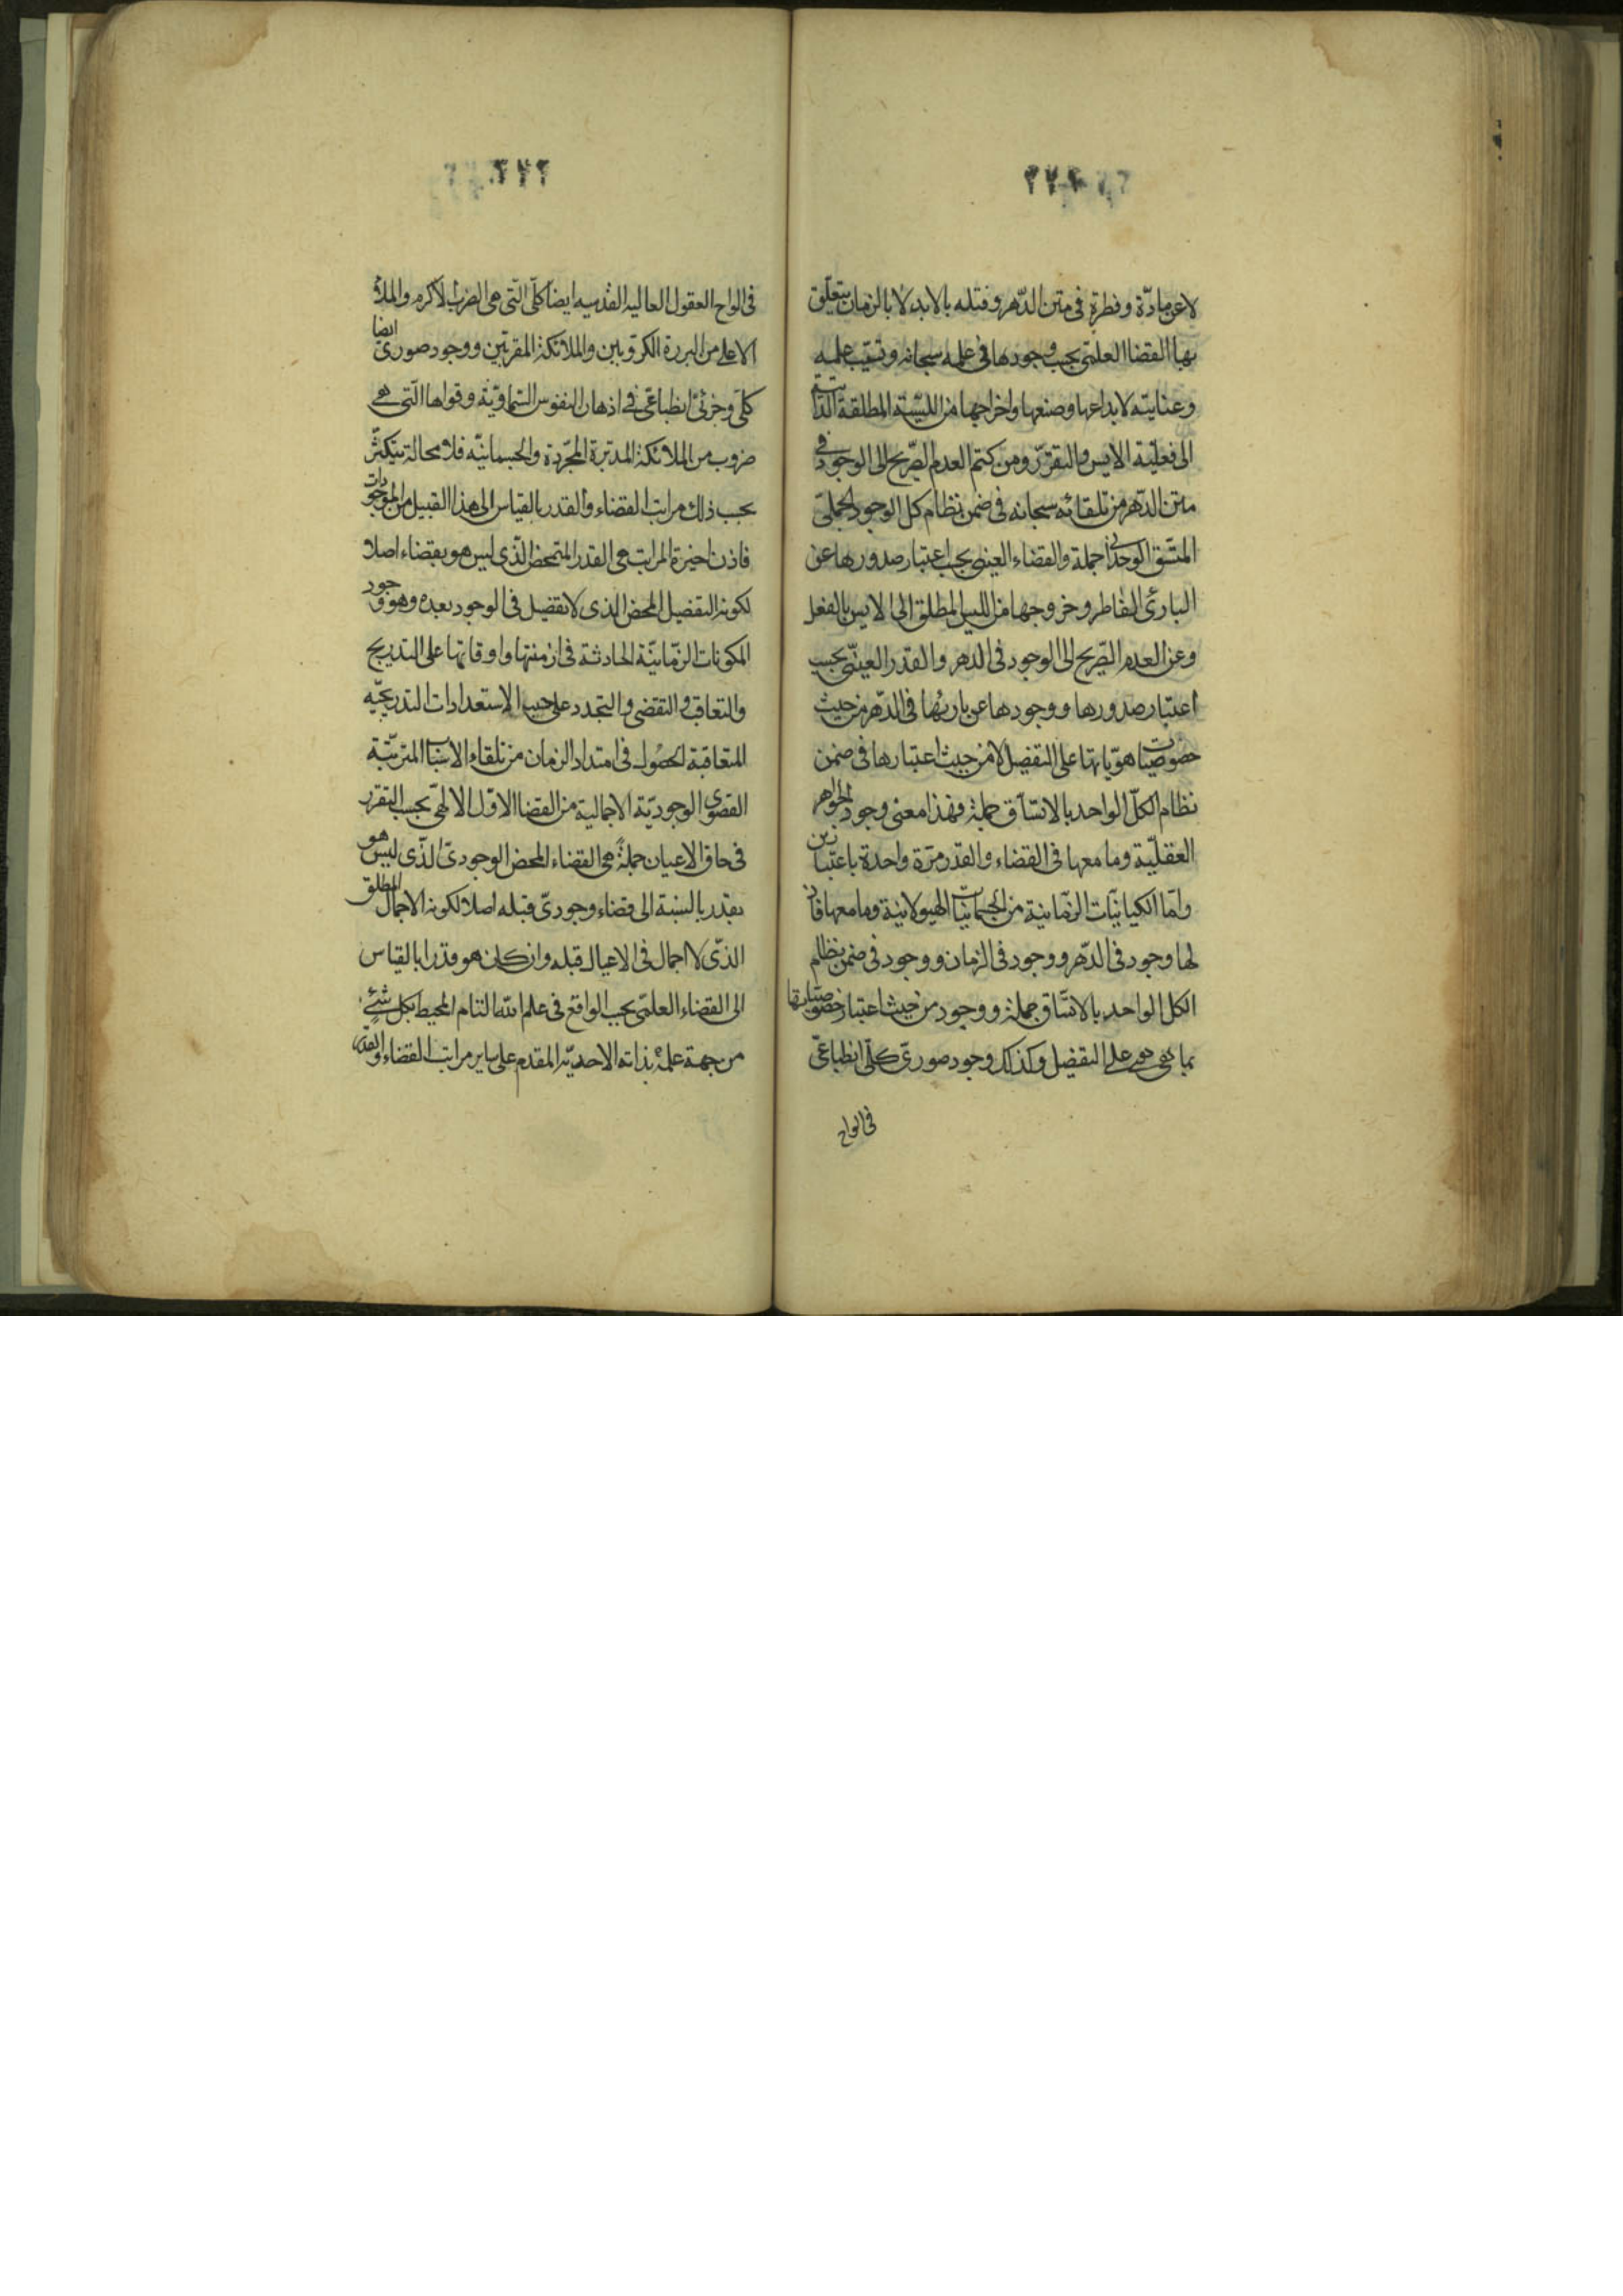 لا عن مادّة وفطرة فى متن الدّهر وقبله بالابد لا بالزمان يتعلّق
بها القضا العلمى بحسب وجودها فى علمه سبحانه وتسبّب علمه
وعنايته لابداعها وصنعها واخراجها من الليسيّة المطلقة الذاتية
الى فعليّة الايس والتقرّر ومن كتم العدم الصّريح الى الوجود فى
متن الدّهر من تلقائه سبحانه فى ضمن نظام كل الوجود الجملىّ
المتّسق الوحدانى جملة والقضاء العينى بحسب اعتبار صدورها عن
البارئ الفاطر وخروجها من الليس المطلق الى الايس بالفعل
وعن العدم الصّريح الى الوجود فى الدهر والقدر العينّى بحسب
اعتبار صدورها ووجودها عن بارئها فى الدّهر من حيث
خصوصيّات هويّاتها على التفصيل لا من حيث اعتبارها فى ضمن
نظام الكلّ الواحد بالاتسّاق جملة فهذا معنى وجود الجواهر
العقليّة وما معها فى القضاء والقدر مرّة واحدة باعتبارين
وامّا الكيانيّات الزمّانية من الجسمانيّات الهيولانية وما معها فان
لها وجود فى الدّهر ووجود فى الزمان ووجود فى ضمن نظام
الكل الواحد بالاتسّاق جملة ووجود من حيث اعتبار خصوصيّاتها
بما هى هى على التفصيل وكذلك وجود صورىّ كلّى انطباعىّ
فى الواح
فى الواح العقول العاليه القدسيه ايضا كلّى الّتى هى الضرب الاكرم والملأ
الاعلى من البررة الكروبيين والملائكة المقربّين ووجود صورىّ ايضا
كلّى وجزئىّ انطباعىّ فى اذهان النفوس السّماويّة وقواها الّتى هى
ضروب من الملائكة المدبّرة المجّردة والجسمانيّه فلا محالة يتكثّر
بحسب ذلك مراتب القضاء والقدر بالقياس الى هذا القبيل من الموجودات
فاذن اخيرة المراتب هى القدر المتمحض الّذى ليس هو بقضاء اصلا
لكونه التفصيل المحض الذى لا تفصيل فى الوجود بعده وهو وجود
المكونات الزمّانيّة الحادثة فى ازمنتها واوقاتها على التدريج
والتعاقب والتقضى والتجدد على حسب الاستعدادات التدريجيّه
المتعاقبة الحصول فى امتداد الزمان من تلقاء الاسباب المترتّبة
القصوى الوجوديّة الاجمالية من القضا الاوّل الالهىّ بحسب التقرر
فى حاق الاعيان جملةً هى القضاء المحض الوجودىّ الّذى ليس هو
بقدر بالنسبة الى قضاء وجودىّ قبله اصلا لكونه الاجمال المطلق
الذّى لا اجمال فى الاعيان قبله وان كان هو قدرا بالقياس
الى القضاء العلمّى بحسب الواقع فى علم الله التام المحيط بكل شئٍ
من جهة علمه بذاته الاحديّه المقدم على ساير مراتب القضاء والقدر